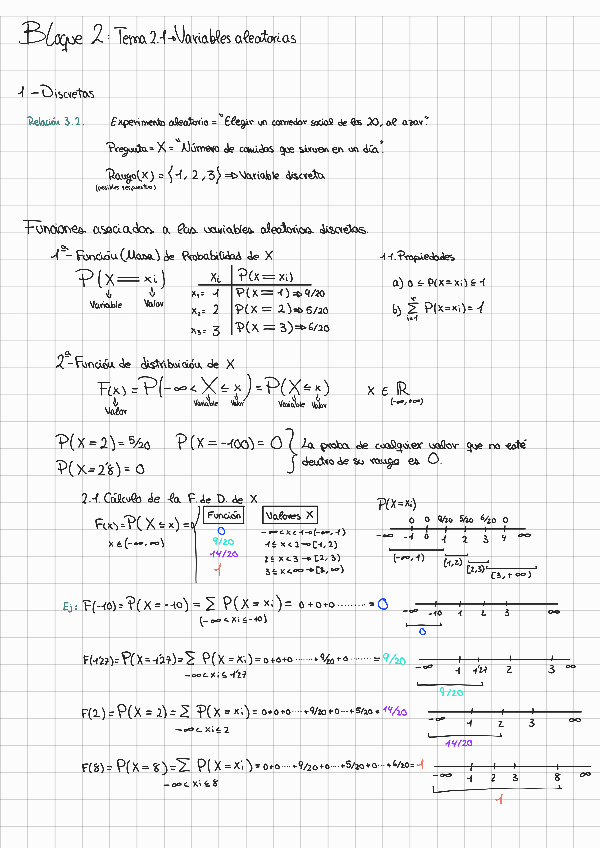 Bloque 2: Tema 2.1→Variables aleatorias
1 - Discretas
Relación 3.2. Experimento aleatorio = "Elegir un comedor social de los 20, al azar".
Pregunta = X = "Número de comidas que sirven en un día".
Rango(X) = {1, 2, 3} ⇒ Variable discreta
(posibles respuestas)
Funciones asociadas a las variables aleatorias discretas.
1ª- Función (Masa) de Probabilidad de X
1.1. Propiedades
P(X = xi)
Variable Valor
xi P(X = xi)
x₁ = 1 P(X = 1) ⇒ 9/20
x₂ = 2 P(X = 2) ⇒ 5/20
x₃ = 3 P(X = 3) ⇒ 6/20
a) 0 ≤ P(X = xi) ≤ 1
b) Σ P(X = xi) = 1
2ª- Función de distribución de X
F(x) = P(-∞ < X ≤ x) = P(X ≤ x) X ∈ ℝ
Valor Variable Valor Variable Valor (-∞, +∞)
P(X = 2) = 5/20 P(X = -100) = 0 } La proba de cualquier valor que no esté
P(X = 2'8) = 0 dentro de su rango es 0.
2.1. Cálculo de la F. de D. de X
F(x) = P(X ≤ x) =
x ∈ (-∞, ∞)
Función Valores X
0 -∞ < x < 1 → (-∞, 1)
9/20 1 ≤ x < 2 → [1, 2)
14/20 2 ≤ x < 3 → [2, 3)
1 3 ≤ x < ∞ → [3, ∞)
P(X = xi)
0 0 9/20 5/20 6/20 0
-∞ -1 0 1 2 3 4 ∞
(-∞, 1) [1,2) [2,3) [3, +∞)
Ej: F(-10) = P(X = -10) = Σ P(X = xi) = 0 + 0 + 0 ........... = 0
(-∞ < xi ≤ -10)
-∞ -10 1 2 3 ∞
0
F(1'27) = P(X = 1'27) = Σ P(X = xi) = 0 + 0 + 0 ...... + 9/20 + 0 ...... = 9/20
-∞ < xi ≤ 1'27
-∞ 1 1'27 2 3 ∞
9/20
F(2) = P(X = 2) = Σ P(X = xi) = 0 + 0 + 0 ..... + 9/20 + 0 .... + 5/20 = 14/20
-∞ < xi ≤ 2
-∞ 1 2 3 ∞
14/20
F(8) = P(X = 8) = Σ P(X = xi) = 0 + 0 ..... + 9/20 + 0 .... + 5/20 + 0 .... + 6/20 = 1
-∞ < xi ≤ 8
-∞ 1 2 3 8 ∞
1